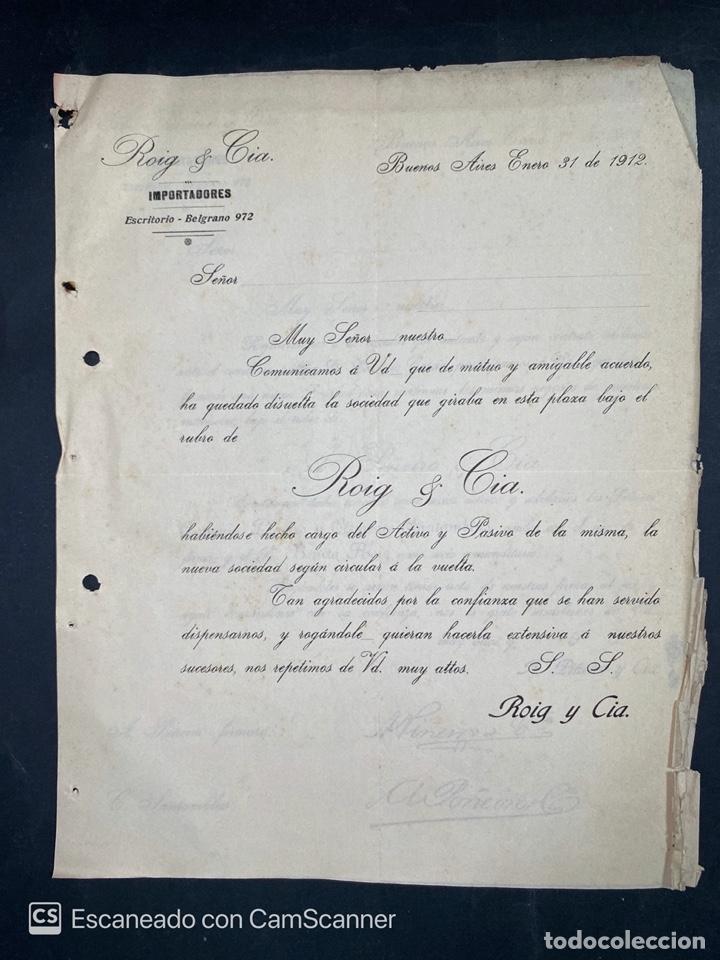 Roig & Cia.
IMPORTADORES
Escritorio - Belgrano 972
Buenos Aires Enero 31 de 1912.
Señor
Muy Señor nuestro
Comunicamos á Vd que de mútuo y amigable acuerdo,
ha quedado disuelta la sociedad que giraba en esta plaza bajo el
rubro de
Roig & Cia.
habiéndose hecho cargo del Activo y Pasivo de la misma, la
nueva sociedad según circular á la vuelta.
Tan agradecidos por la confianza que se han servido
dispensarnos, y rogándole quieran hacerla extensiva á nuestros
sucesores, nos repetimos de Vd. muy attos. S. S.
Roig y Cia.
CS Escaneado con CamScanner
todocoleccion